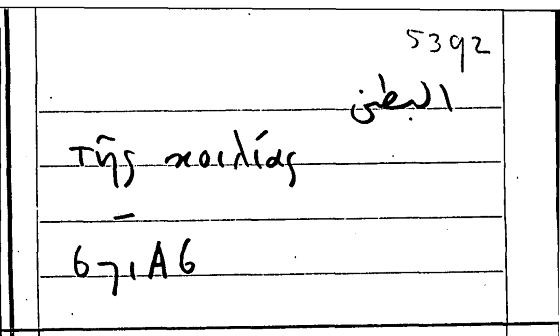 5392
البطن
τῆς κοιλίας
671A6